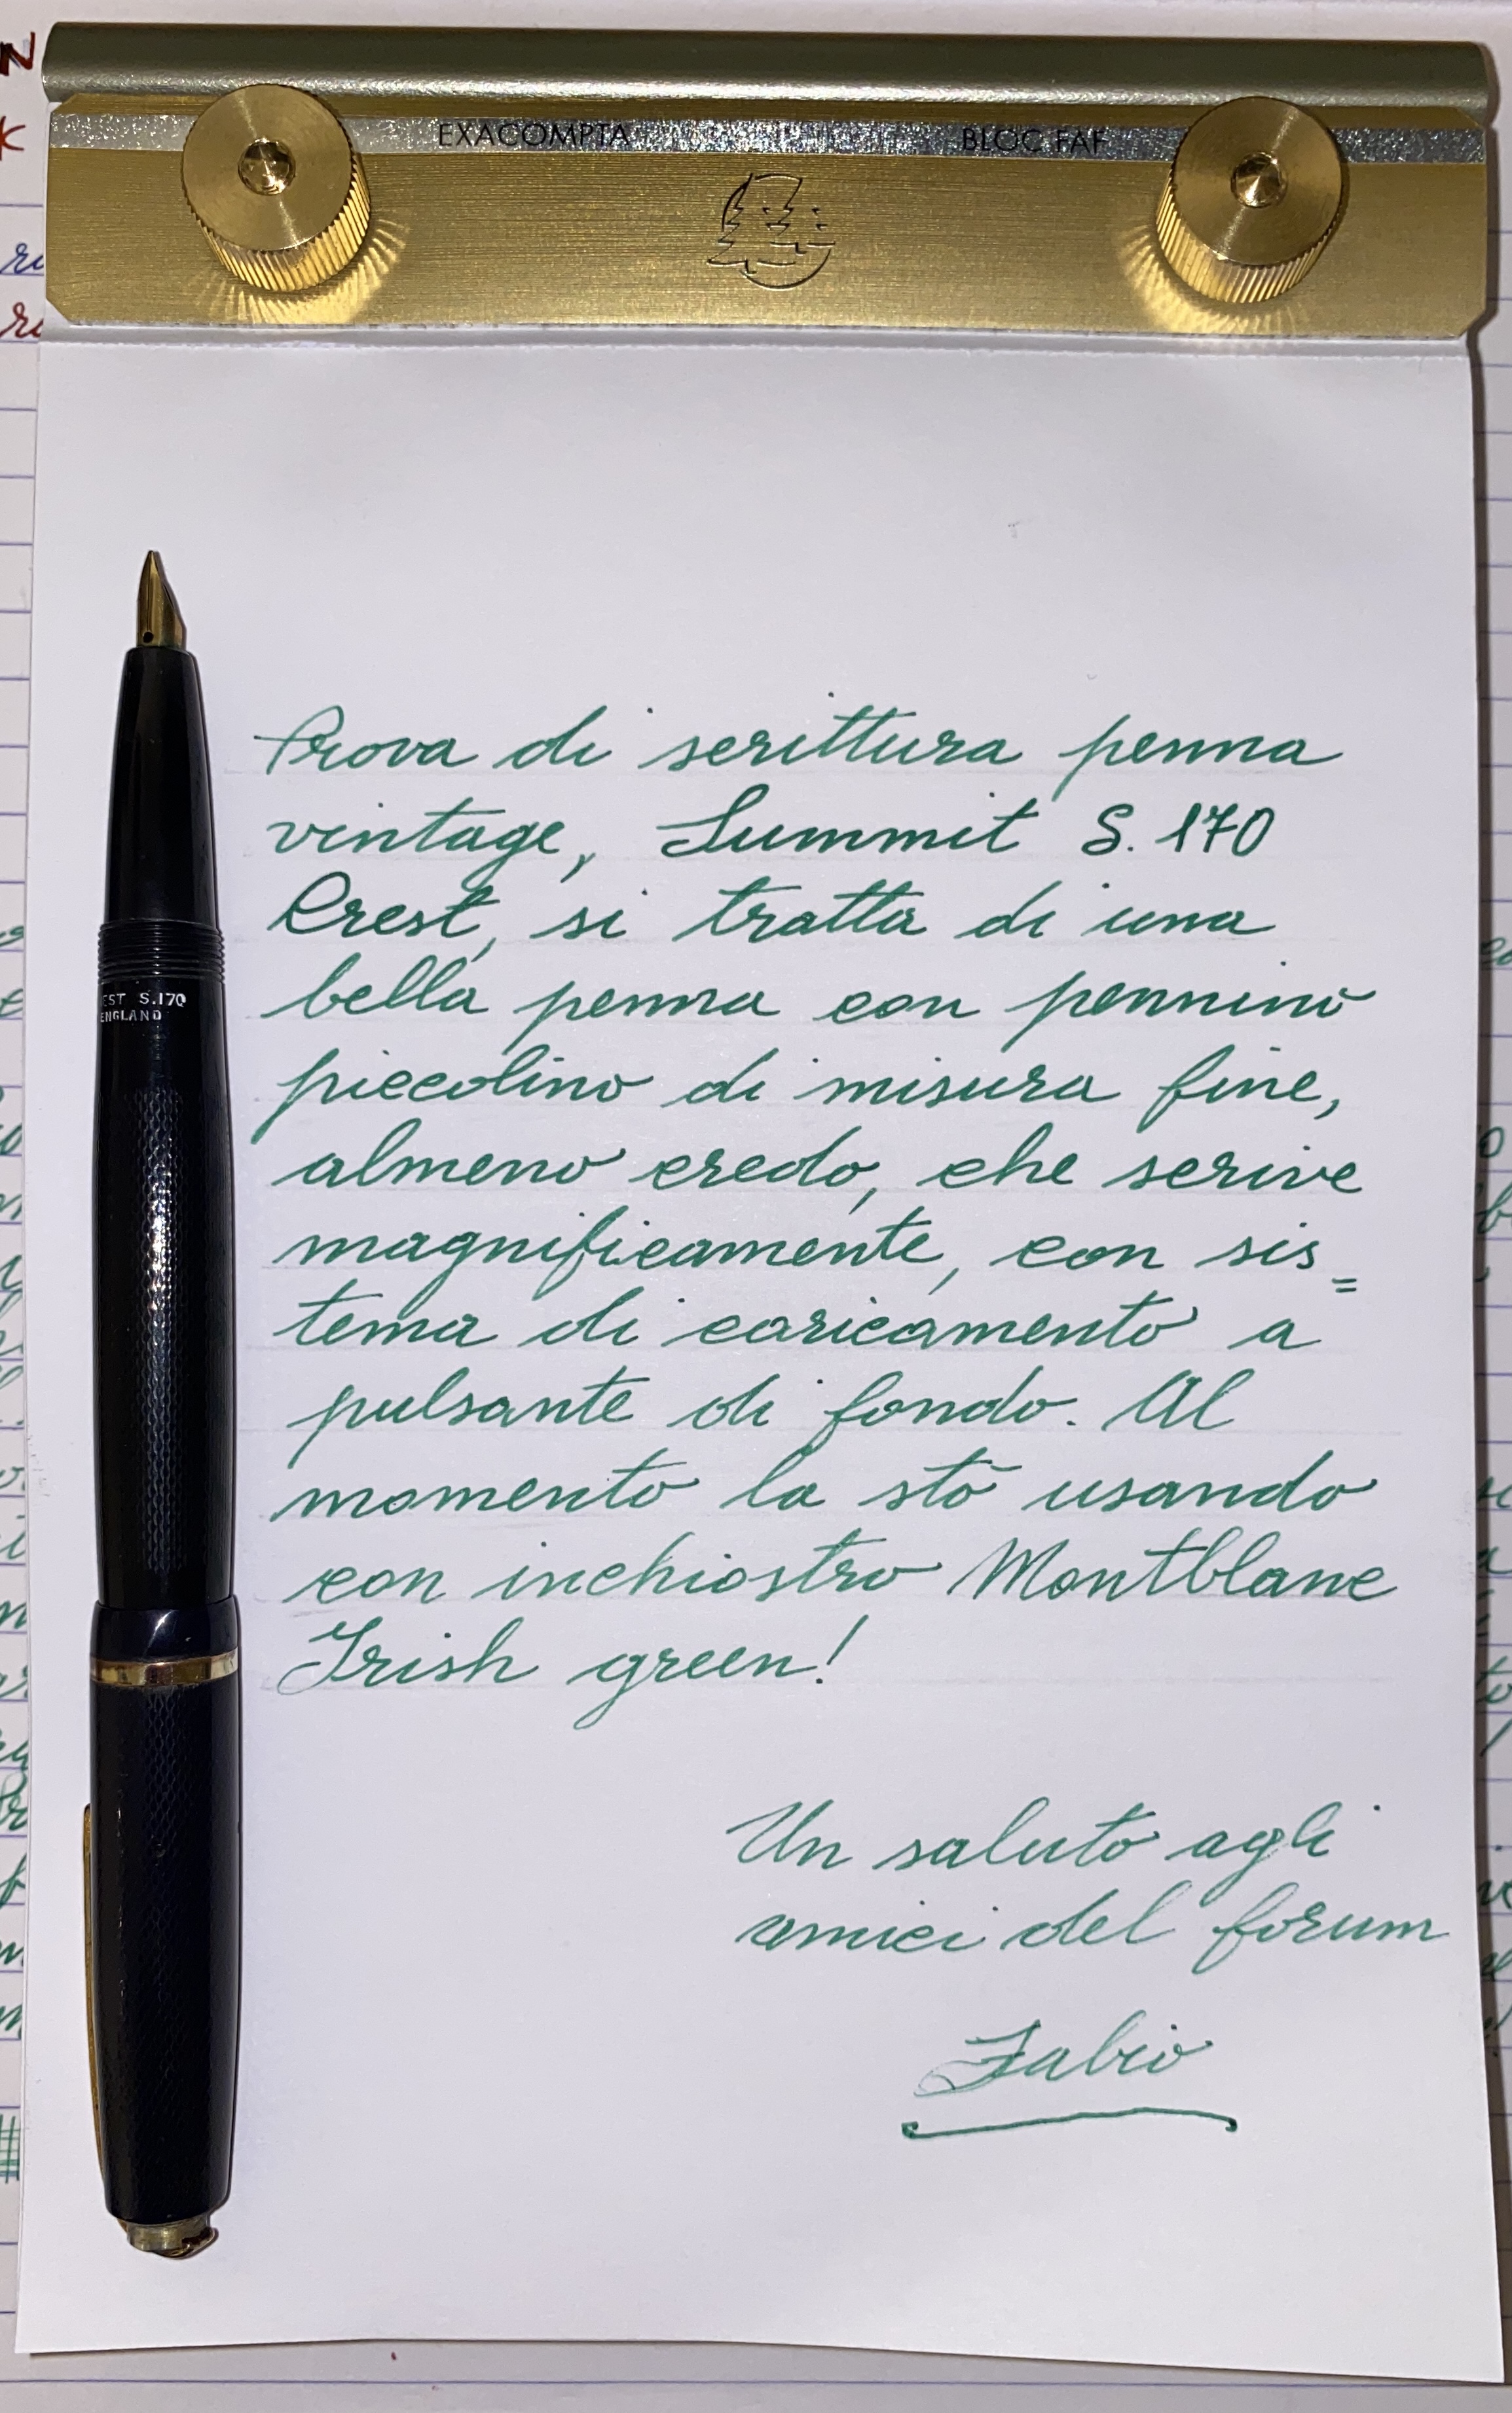 EXACOMPTA BLOC FAF
Prova di scrittura penna
vintage, Summit S. 170
Crest, si tratta di una
bella penna con pennino
piccolino di misura fine,
almeno credo, che scrive
magnificamente, con sis=
tema di caricamento a
pulsante di fondo. Al
momento la stò usando
con inchiostro Montblanc
Irish green!
Un saluto agli
amici del forum
Fabio
EST S.170
ENGLAND